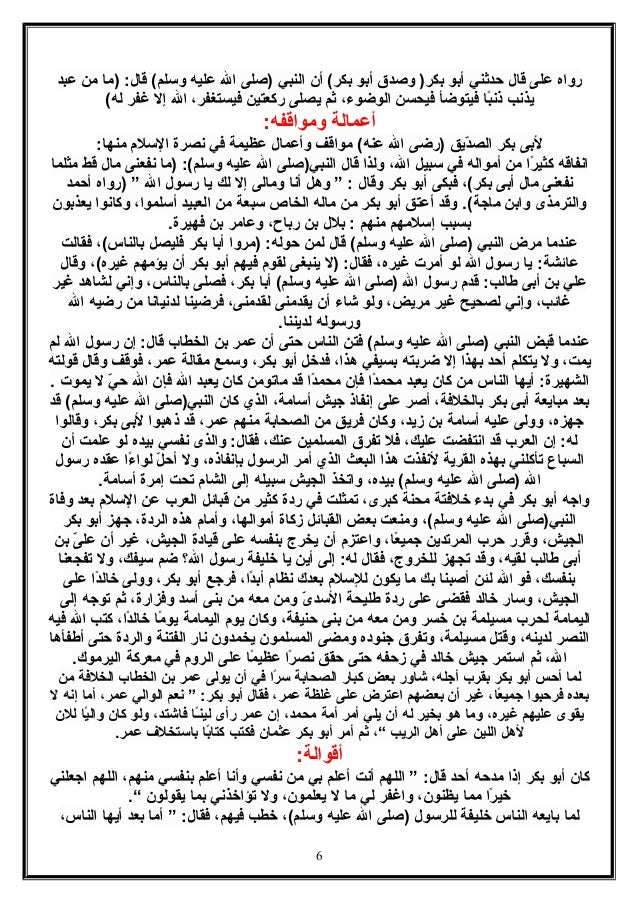 رواه على قال حدثني أبو بكر( وصدق أبو بكر) أن النبي (صلى الله عليه وسلم) قال: (ما من عبد
يذنب ذنبًا فيتوضأ فيحسن الوضوء، ثم يصلى ركعتين فيستغفر، الله إلا غفر له)
أعمالة ومواقفه:
لأبى بكر الصدّيق (رضى الله عنه) مواقف وأعمال عظيمة في نصرة الإسلام منها:
انفاقه كثيرًا من أمواله في سبيل الله، ولذا قال النبي(صلى الله عليه وسلم): (ما نفعنى مال قط مثلما
نفعنى مال أبى بكر)، فبكى أبو بكر وقال : ” وهل أنا ومالى إلا لك يا رسول الله ” (رواه أحمد
والترمذى وابن ماجة). وقد أعتق أبو بكر من ماله الخاص سبعة من العبيد أسلموا، وكانوا يعذبون
بسبب إسلامهم منهم : بلال بن رباح، وعامر بن فهيرة.
عندما مرض النبي (صلى الله عليه وسلم) قال لمن حوله: (مروا أبا بكر فليصل بالناس)، فقالت
عائشة: يا رسول الله لو أمرت غيره، فقال: (لا ينبغى لقوم فيهم أبو بكر أن يؤمهم غيره)، وقال
علي بن أبى طالب: قدم رسول الله (صلى الله عليه وسلم) أبا بكر، فصلى بالناس، وإني لشاهد غير
غائب، وإني لصحيح غير مريض، ولو شاء أن يقدمنى لقدمنى، فرضينا لدنيانا من رضيه الله
ورسوله لديننا.
عندما قبض النبي (صلى الله عليه وسلم) فتن الناس حتى أن عمر بن الخطاب قال: إن رسول الله لم
يمت، ولا يتكلم أحد بهذا إلا ضربته بسيفي هذا، فدخل أبو بكر، وسمع مقالة عمر، فوقف وقال قولته
الشهيرة: أيها الناس من كان يعبد محمدًا فإن محمدًا قد ماتومن كان يعبد الله فإن الله حيّ لا يموت .
بعد مبايعة أبى بكر بالخلافة، أصر على إنفاذ جيش أسامة، الذي كان النبي(صلى الله عليه وسلم) قد
جهزه، وولى عليه أسامة بن زيد، وكان فريق من الصحابة منهم عمر، قد ذهبوا لأبى بكر، وقالوا
له: إن العرب قد انتفضت عليك، فلا تفرق المسلمين عنك، فقال: والذى نفسي بيده لو علمت أن
السباع تأكلني بهذه القرية لأنفذت هذا البعث الذي أمر الرسول بإنفاذه، ولا أحلّ لواءًا عقده رسول
الله (صلى الله عليه وسلم) بيده، واتخذ الجيش سبيله إلى الشام تحت إمرة أسامة.
واجه أبو بكر في بدء خلافتة محنة كبرى، تمثلت في ردة كثير من قبائل العرب عن الإسلام بعد وفاة
النبي(صلى الله عليه وسلم)، ومنعت بعض القبائل زكاة أموالها، وأمام هذه الردة، جهز أبو بكر
الجيش، وقرر حرب المرتدين جميعًا، واعتزم أن يخرج بنفسه على قيادة الجيش، غير أن علىّ بن
أبى طالب لقيه، وقد تجهز للخروج، فقال له: إلى أين يا خليفة رسول الله؟ ضم سيفك، ولا تفجعنا
بنفسك، فو الله لئن أصبنا بك ما يكون للإسلام بعدك نظام أبدًا، فرجع أبو بكر، وولى خالدًا على
الجيش، وسار خالد فقضى على ردة طليحة الأسدىّ ومن معه من بنى أسد وفزارة، ثم توجه إلى
اليمامة لحرب مسيلمة بن خسر ومن معه من بنى حنيفة، وكان يوم اليمامة يومًا خالدًا، كتب الله فيه
النصر لدينه، وقتل مسيلمة، وتفرق جنوده ومضى المسلمون يخمدون نار الفتنة والردة حتى أطفأها
الله، ثم استمر جيش خالد في زحفه حتى حقق نصرًا عظيمًا على الروم في معركة اليرموك.
لما أحس أبو بكر بقرب أجله، شاور بعض كبار الصحابة سرًا في أن يولى عمر بن الخطاب الخلافة من
بعده فرحبوا جميعًا، غير أن بعضهم اعترض على غلظة عمر، فقال أبو بكر: ” نعم الوالي عمر، أما إنه لا
يقوى عليهم غيره، وما هو بخير له أن يلي أمر أمة محمد، إن عمر رأى لينًا فاشتد، ولو كان واليًا للان
لأهل اللين على أهل الريب “، ثم أمر أبو بكر عثمان فكتب كتابًا باستخلاف عمر.
أقوالة:
كان أبو بكر إذا مدحه أحد قال: ” اللهم أنت أعلم بي من نفسي وأنا أعلم بنفسي منهم، اللهم اجعلني
خيرًا مما يظنون، واغفر لي ما لا يعلمون، ولا تؤاخذني بما يقولون “.
لما بايعه الناس خليفة للرسول (صلى الله عليه وسلم)، خطب فيهم، فقال: ” أما بعد أيها الناس،
6